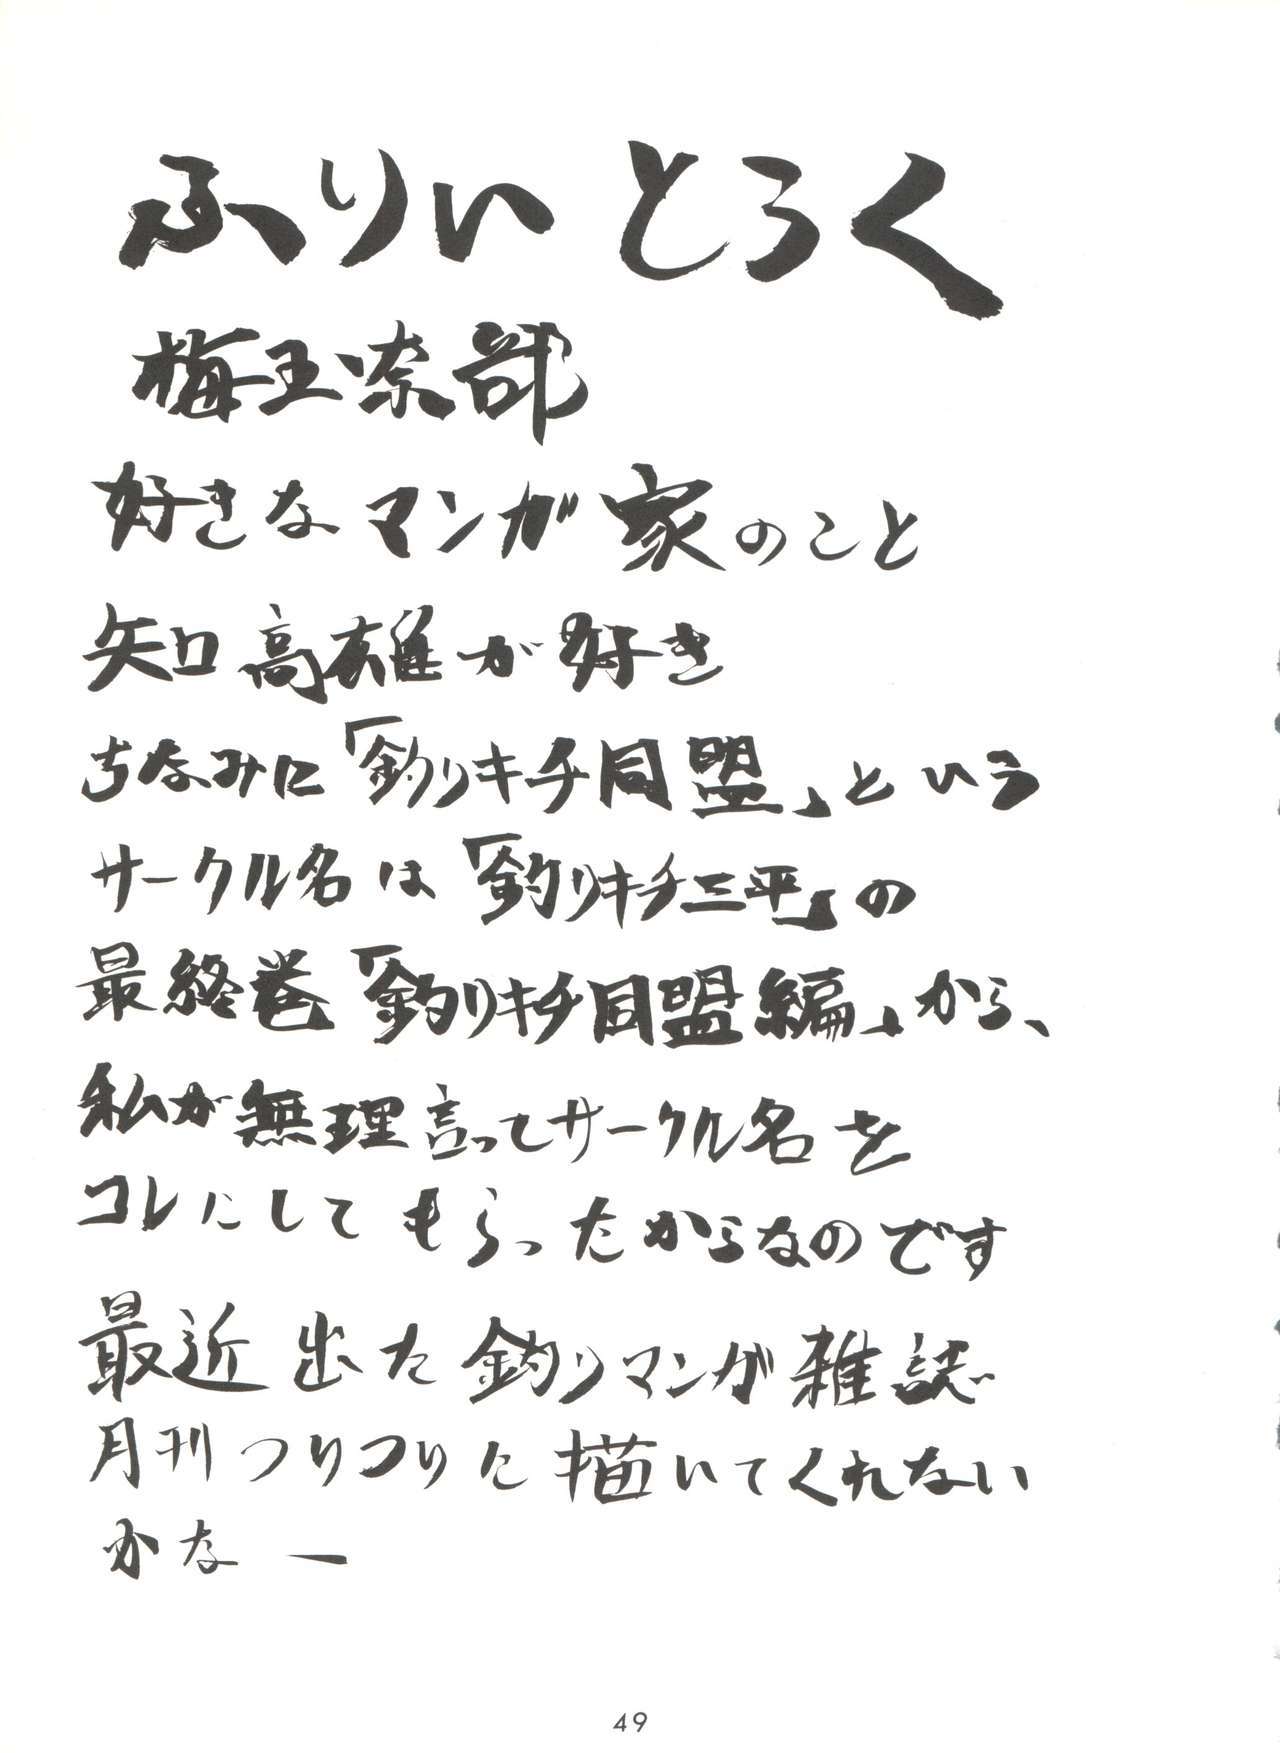 ふりい とろく
梅玉奈部
好きなマンガ家のこと
矢口高雄が好き
ちなみに「釣りキチ同盟」という
サークル名は「釣りキチ三平」の
最終巻「釣りキチ同盟編」から、
私が無理言ってサークル名を
コレにしてもらったからなのです
最近出た釣りマンガ雑誌
月刊つりつりに描いてくれない
かなー
49